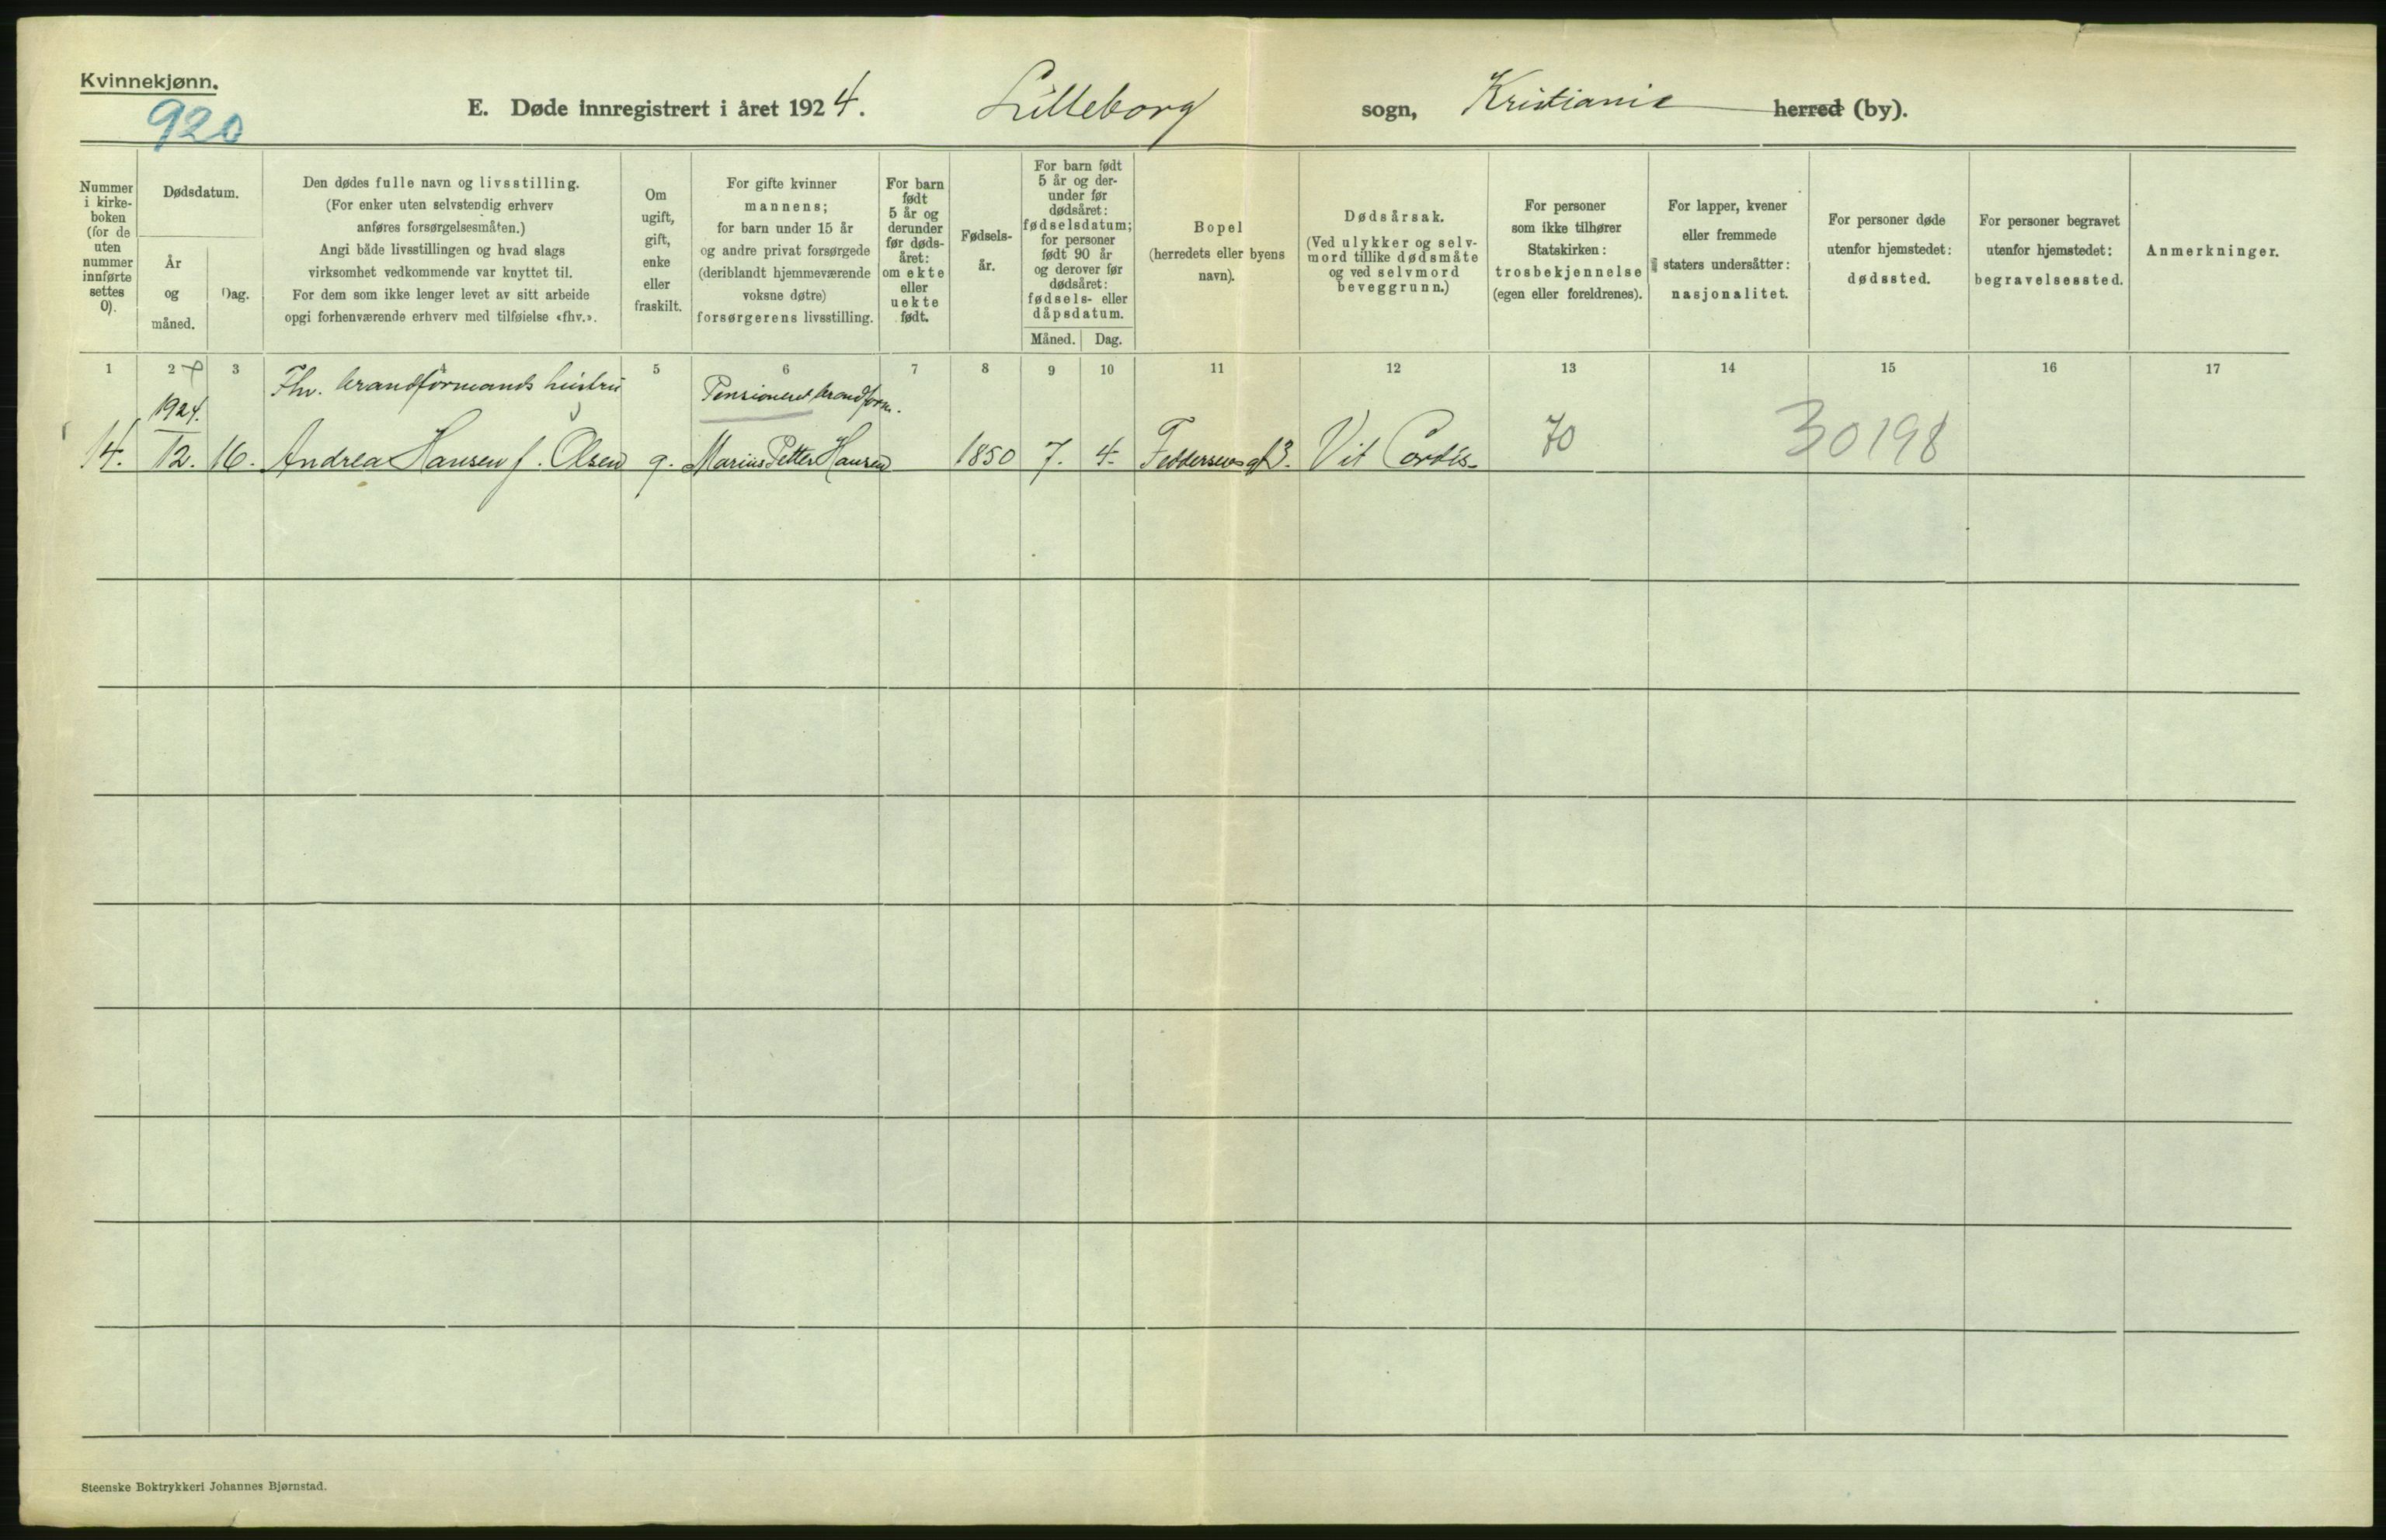 Kvinnekjønn.
920
E. Døde innregistrert i året 1924. Lilleborg sogn, Kristiania herred (by).
Nummer
i kirke-
boken
(for de
uten
nummer
innførte
settes
0).
Dødsdatum.
År
og
måned.
Dag.
Den dødes fulle navn og livsstilling.
(For enker uten selvstendig erhverv
anføres forsørgelsesmåten.)
Angi både livsstillingen og hvad slags
virksomhet vedkommende var knyttet til.
For dem som ikke lenger levet av sitt arbeide
opgi forhenværende erhverv med tilføielse «fhv.».
Om
ugift,
gift,
enke
eller
fraskilt.
For gifte kvinner
mannens;
for barn under 15 år
og andre privat forsørgede
(deriblandt hjemmeværende
voksne døtre)
forsørgerens livsstilling.
For barn
født
5 år og
derunder
før døds-
året:
om ekte
eller
uekte
født.
Fødsels-
år.
For barn født
5 år og der-
under før
dødsåret:
fødselsdatum;
for personer
født 90 år
og derover før
dødsåret:
fødsels- eller
dåpsdatum.
Måned. Dag.
Bopel
(herredets eller byens
navn).
Dødsårsak.
(Ved ulykker og selv-
mord tillike dødsmåte
og ved selvmord
beveggrunn.)
For personer
som ikke tilhører
Statskirken:
trosbekjennelse
(egen eller foreldrenes).
For lapper, kvener
eller fremmede
staters undersåtter:
nasjonalitet.
For personer døde
utenfor hjemstedet:
dødssted.
For personer begravet
utenfor hjemstedet:
begravelsessted.
Anmerkninger.
1 2 3 5 6 7 8 9 10 11 12 13 14 15 16 17
Fhv. brandformands hustru Pensioneret brandform.
1924.
14. 12. 16. Andrea Hansen f. Olsen g. Marius Petter Hansen 1850 7. 4. Feddersens gt 3. Vit Cordis. 70 30198
Steenske Boktrykkeri Johannes Bjørnstad.